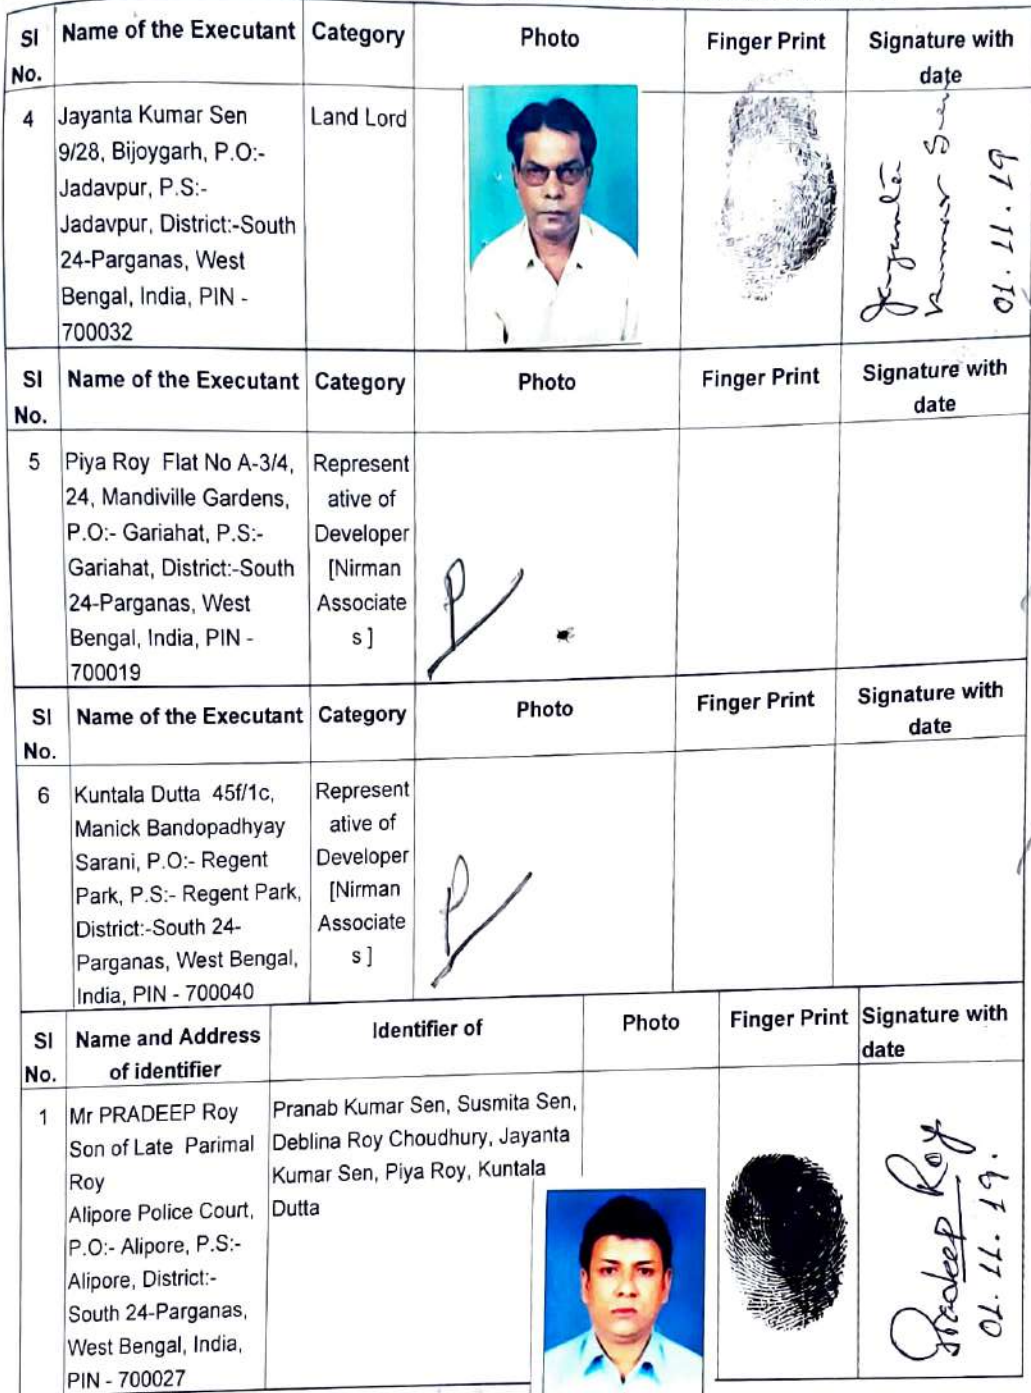 Sl No. Name of the Executant Category Photo Finger Print Signature with date
4 Jayanta Kumar Sen Land Lord
9/28, Bijoygarh, P.O:-
Jadavpur, P.S:-
Jadavpur, District:-South
24-Parganas, West
Bengal, India, PIN -
700032
Jayanta
Kumar Sen
01.11.19
Sl No. Name of the Executant Category Photo Finger Print Signature with date
5 Piya Roy Flat No A-3/4,
24, Mandiville Gardens,
P.O:- Gariahat, P.S:-
Gariahat, District:-South
24-Parganas, West
Bengal, India, PIN -
700019
Represent
ative of
Developer
[Nirman
Associate
s ]
Sl No. Name of the Executant Category Photo Finger Print Signature with date
6 Kuntala Dutta 45f/1c,
Manick Bandopadhyay
Sarani, P.O:- Regent
Park, P.S:- Regent Park,
District:-South 24-
Parganas, West Bengal,
India, PIN - 700040
Represent
ative of
Developer
[Nirman
Associate
s ]
Sl No. Name and Address of identifier Identifier of Photo Finger Print Signature with date
1 Mr PRADEEP Roy
Son of Late Parimal
Roy
Alipore Police Court,
P.O:- Alipore, P.S:-
Alipore, District:-
South 24-Parganas,
West Bengal, India,
PIN - 700027
Pranab Kumar Sen, Susmita Sen,
Deblina Roy Choudhury, Jayanta
Kumar Sen, Piya Roy, Kuntala
Dutta
Pradeep Roy
01.11.19.